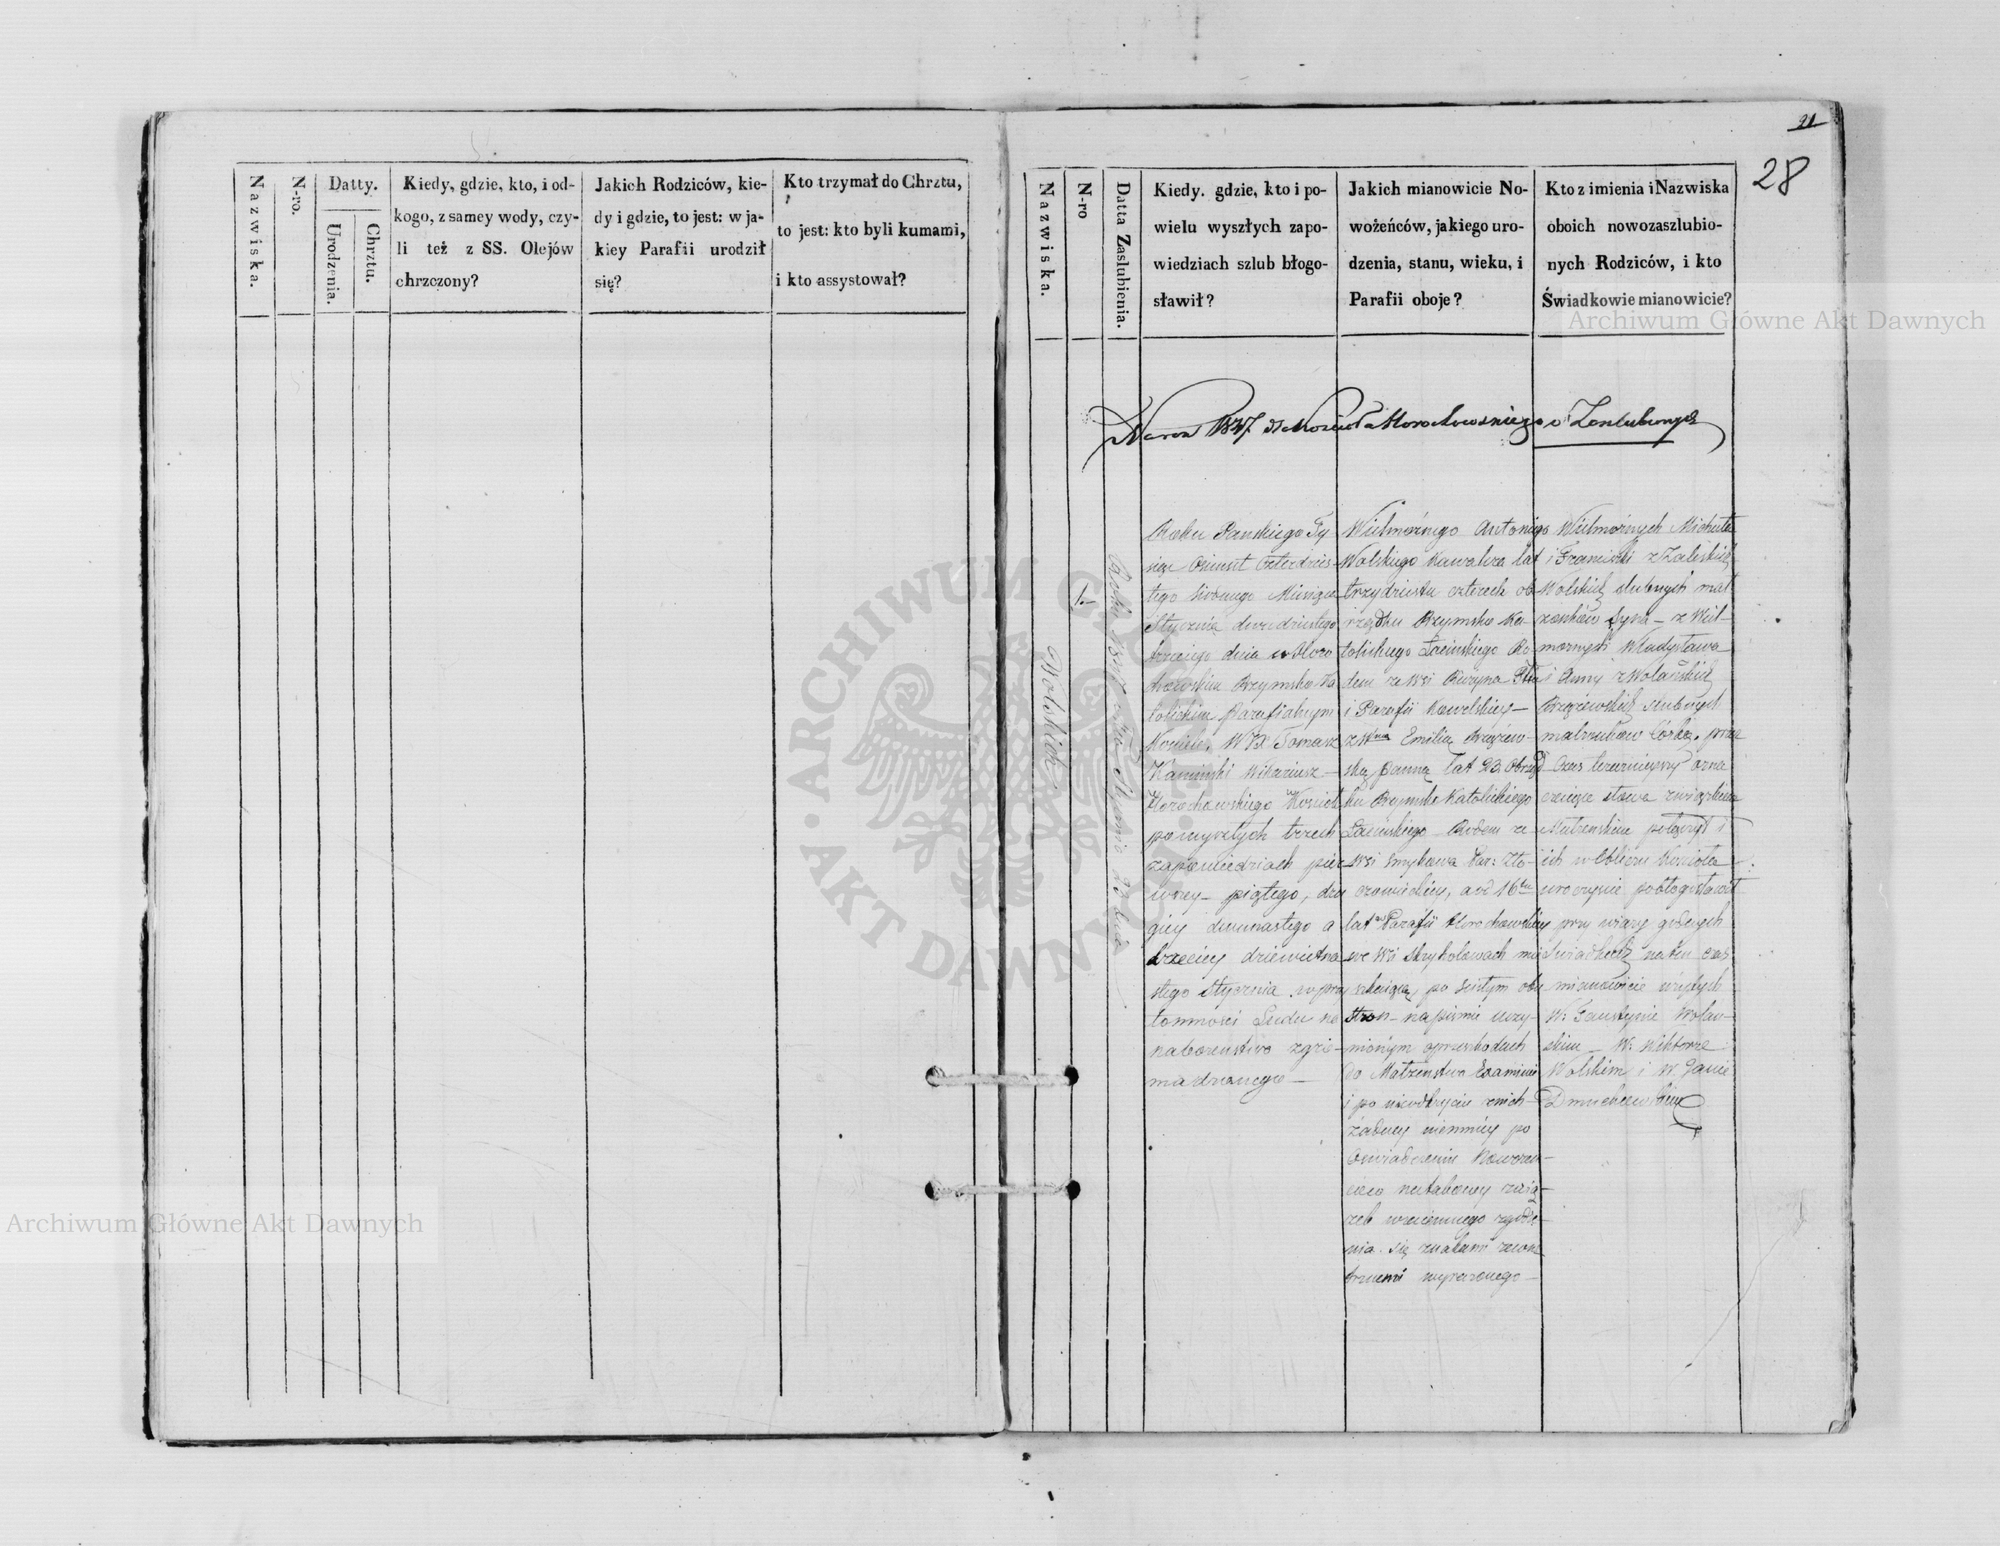 Nazwiska.
N-ro.
Datty.
Urodzenia.
Chrztu.
Kiedy, gdzie, kto, i od-
kogo, z samey wody, czy-
li też z SS. Olejów
chrzczony?
Jakich Rodziców, kie-
dy i gdzie, to jest: w ja-
kiey Parafii urodził
się?
Kto trzymał do Chrztu,
to jest: kto byli kumami,
i kto assystował?
21
28
Nazwiska.
N-ro
Datta Zaslubienia.
Kiedy. gdzie, kto i po-
wielu wyszłych zapo-
wiedziach szlub błogo-
sławił?
Jakich mianowicie No-
wożeńców, jakiego uro-
dzenia, stanu, wieku, i
Parafii oboje?
Kto z imienia i Nazwiska
oboich nowozaszlubio-
nych Rodziców, i kto
Świadkowie mianowicie?
Na rok 1847 z Kościoła Horochowskiego o Zaslubionych
Wolskich
1.-
Roku 1847 Stycznia 23 dnia
Roku Pańskiego Ty
siąc Osimset Czterdzies-
tego siódmego Miesiąca
Stycznia dwudziestego
trzeciego dnia w Horo
chowskim Rzymsko Ka
tolickim Parafialnym
Kościele, W JX Tomasz
Kamiński Wikariusz-
Horochowskiego Kościoła
po wyszłych trzech
zapowiedziach pier
wszey- piątego, dru
giey dwunastego a
trzeciey dziewietna
stego Stycznia w przy
tomności Ludu na
nabożenstwo zgro-
madzonego-
Wielmożnego Antoniego
Wolskiego Kawalera lat
trzydziestu czterech ob
rządku Rzymsko Ka-
tolickiego Łacińskiego Ro
dem ze Wsi
i Parafii Kowelskiey-
z Wną Emilią Brzozow-
ską panną lat 23. Obrząd
ku Rzymsko Katolickiego
Łacińskiego Rodem ze
Wsi Smykowa Par: Zło-
czowieckiey, a od 16tu
lat w Parafii Horochowskiey
we Wsi Strykolowach mie
szkaiącą, po ścisłym obu
stron- na piśmie uczy-
nionym o przeszkodach
do Małżenstwa Examinie
i po nieodkryciu z nich
żadney niemniey po
Oświadczeniu Nowożeń-
ców
wzaiemnego zgodze-
nia się znakami zewnę
trznemi wyrażonego-
Wielmożnych Michała
i Franciszki z Zaleskich
Wolskich slubnych mał
żonków Syna- z Wiel-
możnych Władysława
i Anny z Wolańskich
slubnych
małżonków Córką, przez
Czas teraznieyszy ozna
czaiące słowa związkiem
Małżenskim połączył i
ich w Obliczu Kościoła
uroczyscie pobłogosławił
przy wiary godnych
Swiadkach na ten czas
mianowicie użytych
W: Faustynie Wolan-
skim- W: Wiktorze
Wolskim i W. Janie
Dmuchowskim
Archiwum Główne Akt Dawnych
Archiwum Główne Akt Dawnych
ARCHIWUM GŁÓWNE
AKT DAWNYCH